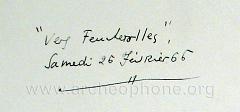 "Vers Feucherolles",
Samedi 26 Février 66
www.archeophone.org